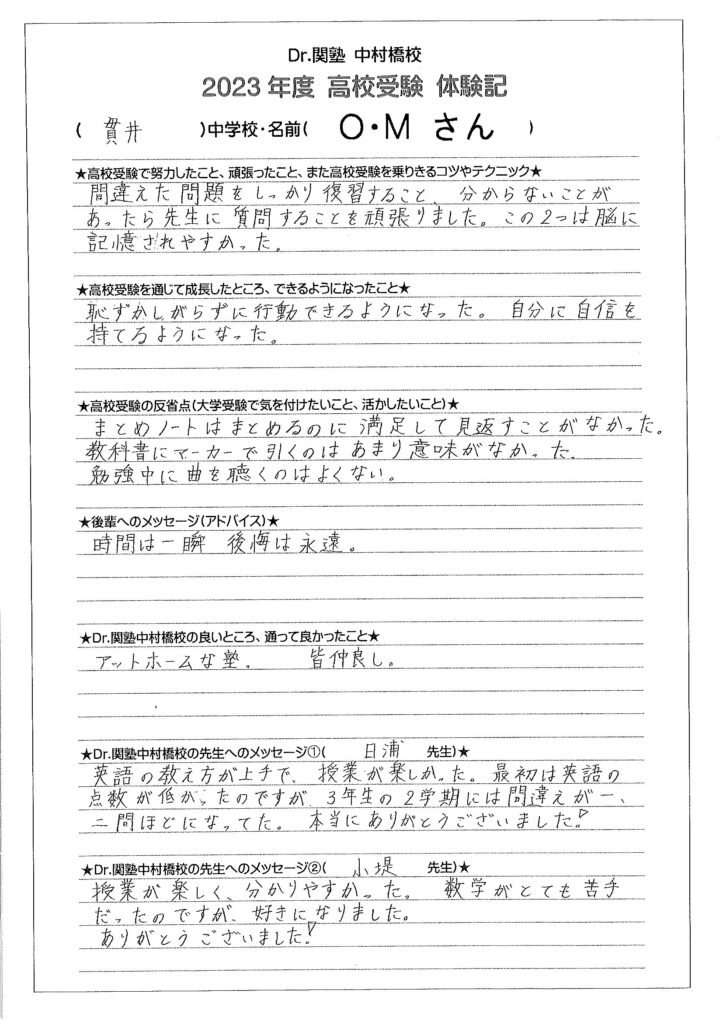 Dr.関塾 中村橋校
2023年度 高校受験 体験記
( 貫井 )中学校・名前( O・M さん )
★高校受験で努力したこと、頑張ったこと、また高校受験を乗りきるコツやテクニック★
間違えた問題をしっかり復習すること、分からないことが
あったら先生に質問することを頑張りました。この2つは脳に
記憶されやすかった。
★高校受験を通じて成長したところ、できるようになったこと★
恥ずかしがらずに行動できるようになった。自分に自信を
持てるようになった。
★高校受験の反省点(大学受験で気を付けたいこと、活かしたいこと)★
まとめノートはまとめるのに満足して見返すことがなかった。
教科書にマーカーで引くのはあまり意味がなかった.
勉強中に曲を聴くのはよくない。
★後輩へのメッセージ(アドバイス)★
時間は一瞬 後悔は永遠。
★Dr.関塾中村橋校の良いところ、通って良かったこと★
アットホームな塾. 皆仲良し。
★Dr.関塾中村橋校の先生へのメッセージ①( 日浦 先生)★
英語の教え方が上手で、授業が楽しかった。最初は英語の
点数が低かったのですが、3年生の2学期には間違えが一、
二問ほどになってた。本当にありがとうございました!
★Dr.関塾中村橋校の先生へのメッセージ②( 小堤 先生)★
授業が楽しく、分かりやすかった。 数学がとても苦手
だったのですが、好きになりました。
ありがとうございました!